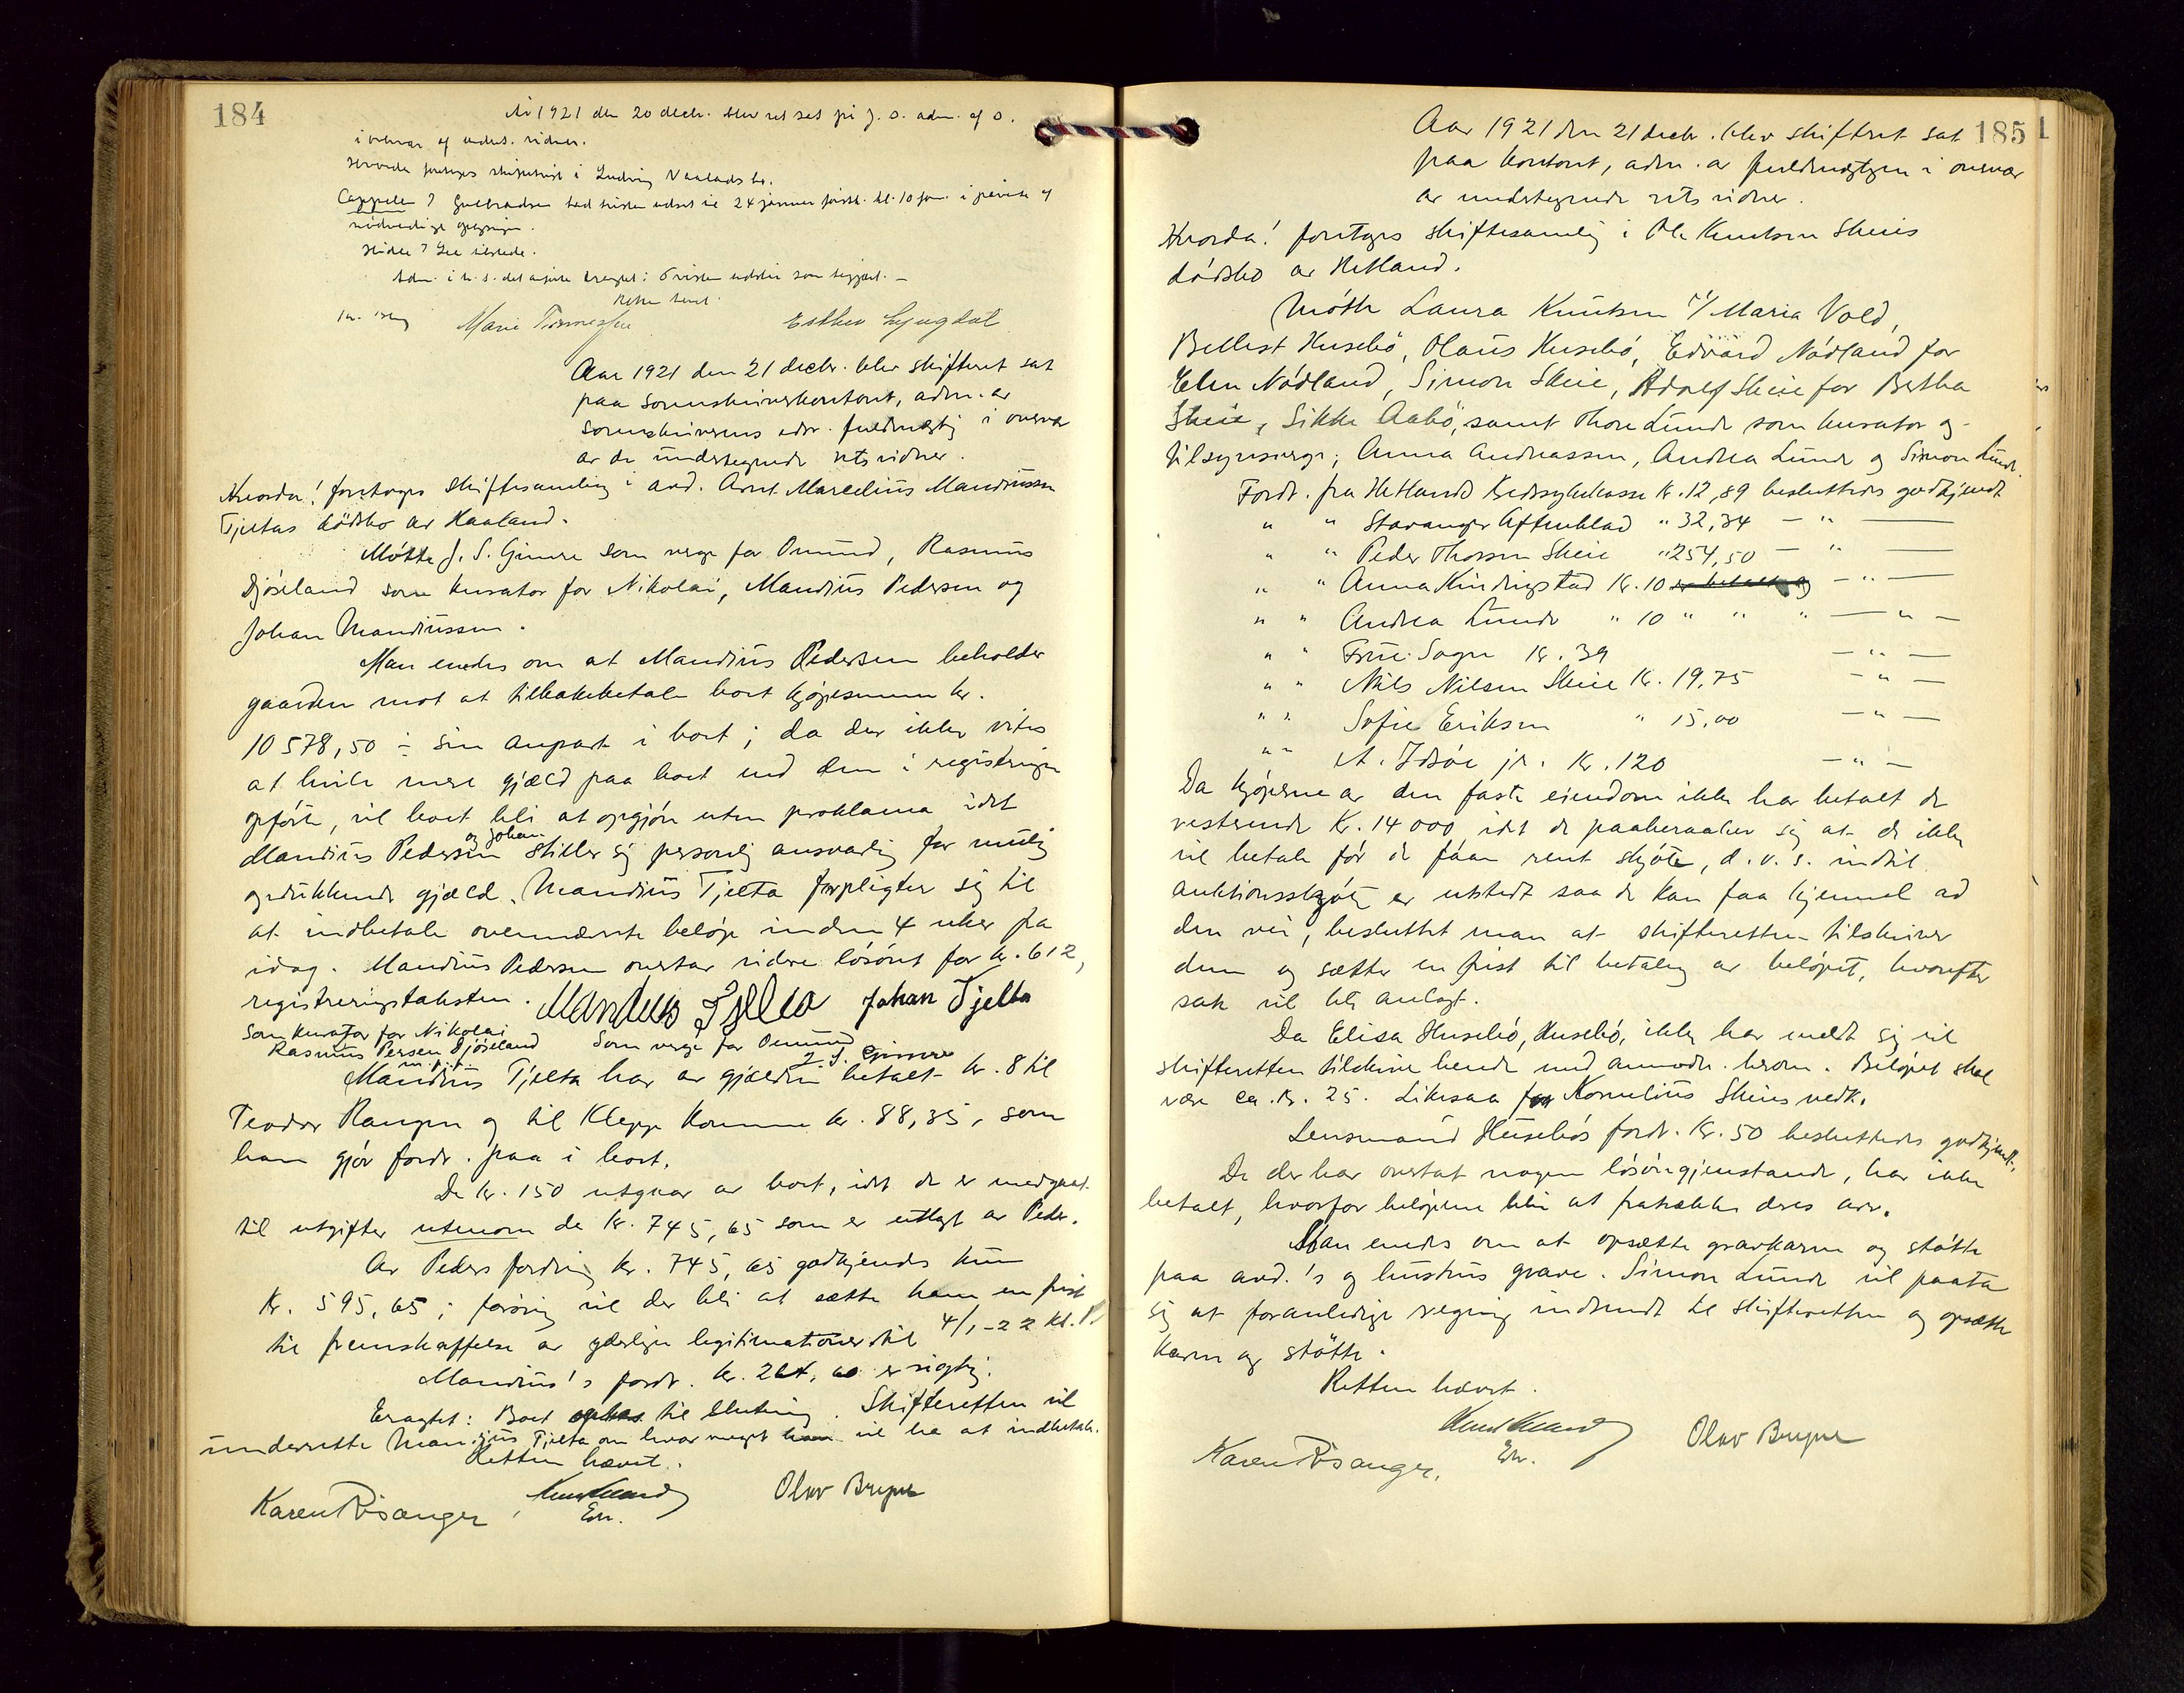 184
År 1921 den 20 decbr. blev ret sat på J. S. adm. af S.
i overvær af undert. vidner.
Hvorda foretoges skiftesamling i Ludvig Vaalads bo.
Cappelen ? Gulbrandsen bad fristen udsat til 24 januar førstk. kl. 10 fm. i påvente af
nødvendige
Skidle ? Lie tilstede.
Adm. i h. s. det afsite kragel: Fristen udstår som begjært. —
Retten hævet.
Marie Tønnessen Esther Lyngdal
Aar 1921 den 21 decbr. blev skifteret sat
paa sorenskriverkontoret, adm. av
sorenskriverens edsv. fuldmægtig i overvær
av de undertegnede retsvidner.
Hvorda! foretoges skiftesamling i avd. Arnt Marcelius Mandiussen
Tjeltas dødsbo av Haaland.
Møtte J. S. Gimre som verge for Omund, Rasmus
Djøseland som kurator for Nikolai, Mandius Pedersen og
Johan Mandiussen.
Man enedes om at Mandius Pedersen beholder
gaarden mot at tilbakebetale boet kjøpesummen kr.
10578,50 ÷ sin anpart i boet; da der ikke vites
at hvile mere gjæld paa boet end den i registringen
opførte, vil boet bli at opgjøre uten proklama idet
og Johan
Mandius Pedersen stiller sig personlig ansvarlig for mulig
opdukkende gjæld. Mandius Tjelta forpligter sig til
at indbetale ovennævnte beløp inden 4 uker fra
idag. Mandius Pedersen overtar videre løsøret for kr. 612,
registreringstaksten. Mandius Tjelta Johan Tjelta
Som kurator for Nikolai
Rasmus Persen Djøseland Som verge for Omund
m. p. p. J. S. Gimre
Mandius Tjelta har av gjælden betalt kr. 8 til
Teodor Rangen og til Klepp komune kr. 88,35, som
han gjør fordr. paa i boet.
De kr. 150 utgaar av boet, idet de er medgaat
til utgifter utenom de kr. 745,65 som er utlagt av Peder.
Av Peders fordring kr. 745,65 godkjendes kun
kr. 595,65; forøvrig vil der bli at sætte ham en frist
til fremskaffelse av yderligere legitimationer til 4/1-22 kl.
Mandius's fordr. kr. er rigtig.
Eragtet: Boet optas til slutning. Skifteretten vil
underrette Mandius Tjelta om hvor meget han vil ha at indbetale.
Retten hævet.
Karen Risanger, Em. Olav Bryne
185
Aar 1921 den 21 decbr. blev skifteret sat
paa kontoret, adm. av fuldmægtigen i overvær
av undertegnede retsvidner.
Hvorda! foretoges skiftesamling i Ole Knutsen Skeies
dødsbo av Hetland.
Møtte Laura Knutsen v/ Maria Vold,
Bellest Husebø, Olaus Husebø, Edvard Nødland for
Elen Nødland, Simon Skeie, Adolf Skeie for Bertha
Skeie, Sikke Aabø, samt Thore Lunde som kurator og
tilsynsverge; Anna Andreassen, Andrea Lunde og Simon Lunde.
Fordr. fra Hetlands Kredssykekasse Kr. 12,89 besluttedes godkjendt
" " Stavanger Aftenblad " 32,34 — " —
" " Peder Thorsen Skeie " 254,50 — " —
" " Anna Kindingstad Kr. 10 er betalt og — " —
" " Andrea Lunde " 10 " " " — " —
" " Frue Sagen Kr. 39 — " —
" " Nils Nilsen Skeie Kr. 19,75 — " —
" " Sofie Eriksen " 15,00 — " —
" " A. Idsøe jr. Kr. 120 — " —
Da kjøperne av den faste eiendom ikke har betalt de
resterende Kr. 14000 idet de paaberaaber sig at de ikke
vil betale før de faar rent skjøte, d. v. s. indtil
auktionsskjøte er utstedt saa de kan faa hjemmel ad
den vei, besluttet man at skifteretten tilskriver
dem og sætter en frist til betaling av beløpet, hvorefter
sak vil bli anlagt.
Da Elisa Husebø, Husebø, ikke har meldt sig vil
skifteretten tilskrive hende med anmodn. herom. Beløpet skal
være ca. kr. 25. Likesaa for Kornelius Skeies vedk.
Lensmand Husebøs fordr. Kr. 50 besluttedes godkjendt.
De der har overtat nogen løsøregjenstande, har ikke
betalt, hvorfor beløpene blir at fratrække deres arv.
Man enedes om at opsætte gravkarm og støtte
paa avd.'s og hustrus grave. Simon Lunde vil paata
sig at foranledige regning indsendt til skifteretten og opsætte
karm og støtte.
Retten hævet.
Karen Risanger, Em. Olav Bryne